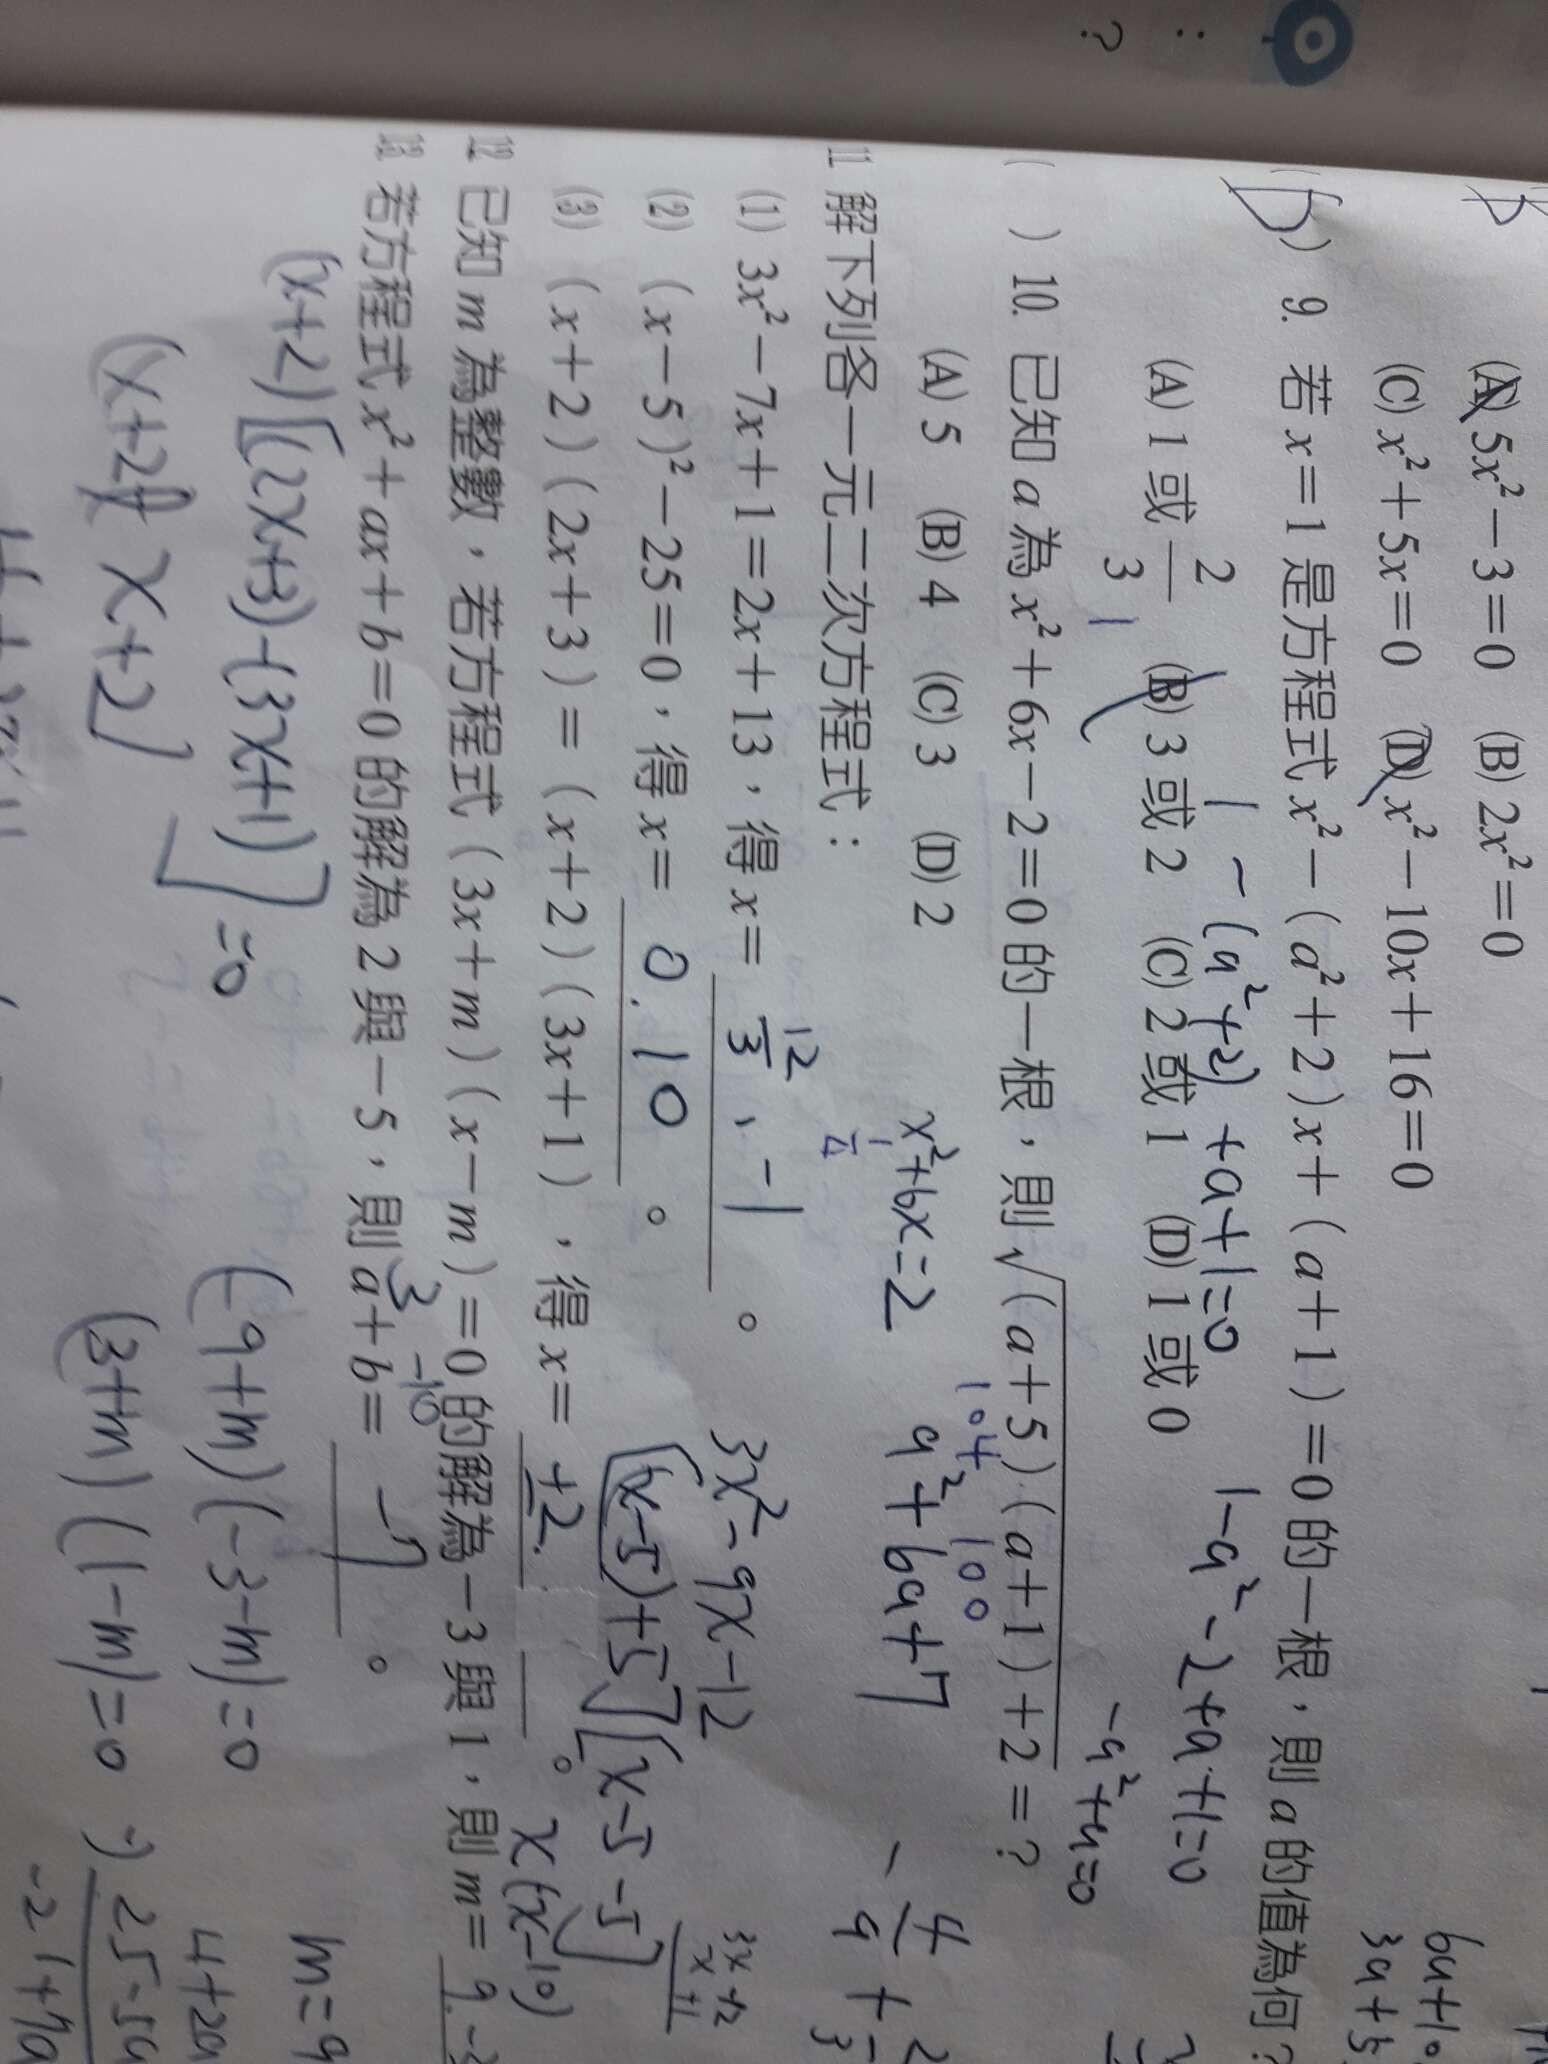 ：
？
(A) 5x²－3＝0 (B) 2x²＝0
(C) x²＋5x＝0 (D) x²－10x＋16＝0
( D ) 9. 若 x＝1 是方程式 x²－( a²＋2 )x＋( a＋1 )＝0 的一根，則 a 的值為何？
1－(a²+2)+a+1=0
1-a²-2+a+1=0
-a²+a=0
(A) 1 或 2/3 (B) 3 或 2 (C) 2 或 1 (D) 1 或 0
( ) 10. 已知 a 為 x²＋6x－2＝0 的一根，則 √( a＋5 )( a＋1 )＋2＝？
104 100
(A) 5 (B) 4 (C) 3 (D) 2
x²+6x=2
a²+6a+7
11 解下列各一元二次方程式：
(1) 3x²－7x＋1＝2x＋13，得 x＝12/3、-1。
3x²-9x-12
3x+12
x+1
(2) ( x－5 )²－25＝0，得 x＝0.10。
[(x-5)+5][x-5-5]
x(x-10)
(3) ( x＋2 )( 2x＋3 )＝( x＋2 )( 3x＋1 )，得 x＝±2。
12 已知 m 為整數，若方程式 ( 3x＋m )( x－m )＝0 的解為－3 與 1，則 m＝9
13 若方程式 x²＋ax＋b＝0 的解為 2 與－5，則 a＋b＝-7。
3 -10
(x+2)[(2x+3)-(3x+1)]=0
(x+2)
x+2]
(-9+m)(-3-m)=0
(3+m)(1-m)=0
m=9
4+2a
25-5a
-21+7a